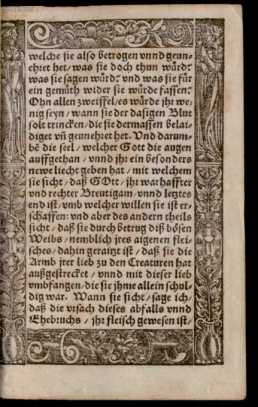 welche sie also betrogen vnnd geun-
ehret het/ was sie doch thun würd:
was sie sagen würd: vnd was sie für
ein gemüth wider sie würde fassen:
Ohn allen zweiffel/es würde jhr we-
nig seyn/ wann sie der dasigen Blut
solt trincken/die sie dermassen belai-
diget vñ geunehret het. Vnd darum-
bē die seel/ welcher Gott die augen
auffgethan/ vnnd jhr ein besonders
newe liecht geben hat/ mit welchem
sie sicht/ daß GOtt/ jhr warhaffter
vnd rechter Breutigam/ vnnd letztes
end ist/ vmb welcher willen sie ist er-
schaffen: vnd aber des andern theils
sicht/ daß sie durch betrug diß bösen
Weibs/ nemblich jres aigenen flei-
sches/ dahin geraitzt ist/ daß sie die
Armb jrer lieb zu den Creaturen hat
außgestrecket/ vnnd mit dieser lieb
vmbfangen/ die sie jhme allein schul-
dig war. Wann sie sicht/ sage ich/
daß die vrsach dieses abfalls vnnd
Ehebruchs/ jhr fleisch gewesen ist/